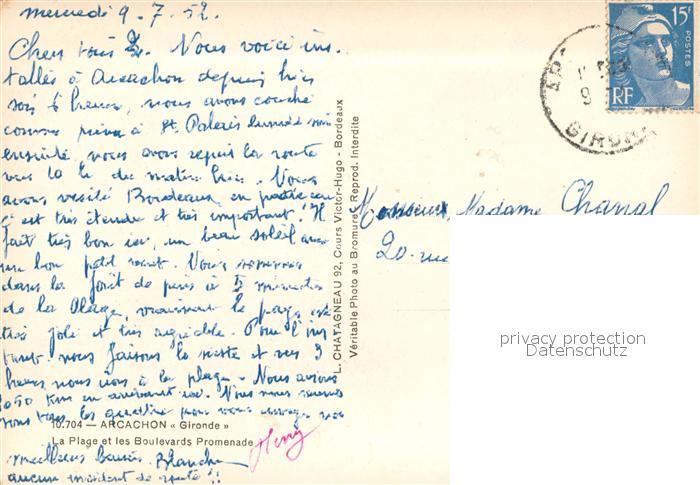 mercredi 9.7.52.
Chers tous 2. Nous voici ins-
tallés à Arcachon depuis hier
soir 6 heures, nous avons couché
comme prévu à St Palais lundi soir
ensuite nous avons repris la route
vers 10 h du matin hier. Nous
avons visité Bordeaux en partie car
c'est très étendu et très important. Il
fait très bon ici, un beau soleil avec
un bon petit vent. Nous sommes
dans la forêt de pins à 5 minutes
de la Plage, vraiment le pays est
très joli et très agréable. Pour l'ins-
tant nous faisons la sieste et vers 3
heures nous irons à la plage. Nous avions
1050 Km en arrivant ici. Nous nous
tous les quatre pour vous envoyer nos
10.704 — ARCACHON « Gironde »
La Plage et les Boulevards Promenade
meilleurs baisers. Blanche
Henry
aucun incident de route !!
L. CHATAGNEAU 92, Cours Victor-Hugo - Bordeaux
Véritable Photo au Bromure - Reprod. Interdite
15F
POSTES
RF
GIRONDE
Monsieur, Madame Chanal
20 rue
privacy protection
Datenschutz